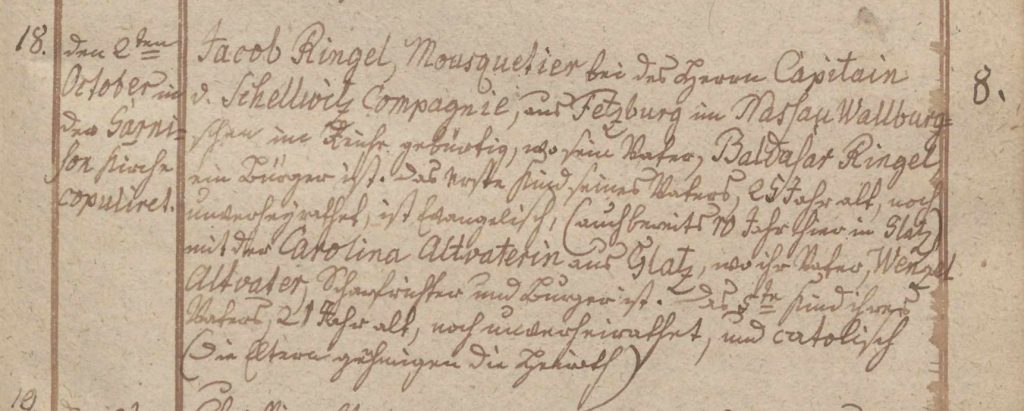 18.
den 2ten
October in
der Garni-
son Kirche
copuliret.
Jacob Ringel, Mousquetier bei des Herrn Capitain
v. Schellwitz Compagnie, aus Fetzburg im Nassau Wallburg-
schen im gebürtig, wo sein Vater, Baldasar Ringel,
ein Bürger ist. Das erste Kind seines Vaters, 25 Jahr alt, noch
unverheyrathet, ist Evangelisch, (auch bereits 10 Jahr hier in Glatz)
mit der Carolina Altvaterin aus Glatz, wo ihr Vater, Wenzel
Altvater, Scharfrichter und Burger ist. Das 5te Kind ihres
Vaters, 21 Jahr alt, noch unverheirathet, und catolisch
(Die Eltern die Heirath)
8.
19